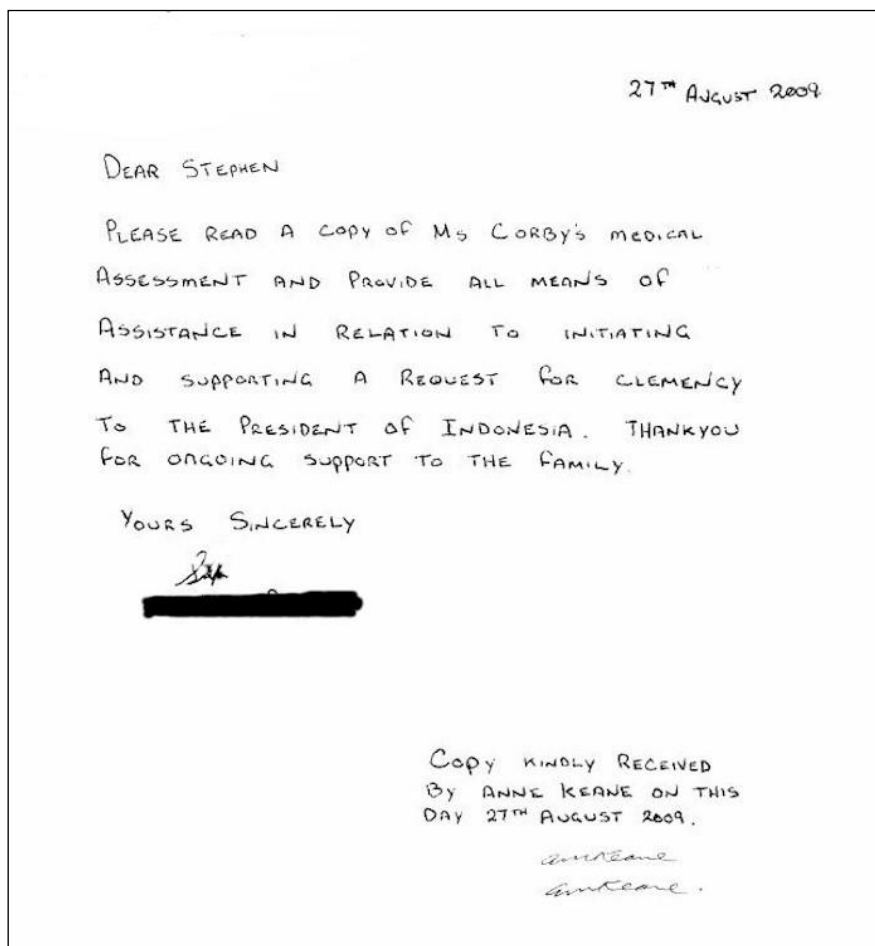 27TH AUGUST 2009
DEAR STEPHEN
PLEASE READ A COPY OF MS CORBY'S MEDICAL
ASSESSMENT AND PROVIDE ALL MEANS OF
ASSISTANCE IN RELATION TO INITIATING
AND SUPPORTING A REQUEST FOR CLEMENCY
TO THE PRESIDENT OF INDONESIA. THANKYOU
FOR ONGOING SUPPORT TO THE FAMILY.
YOURS SINCERELY
COPY KINDLY RECEIVED
BY ANNE KEANE ON THIS
DAY 27TH AUGUST 2009.
AnnKeane
AnnKeane.